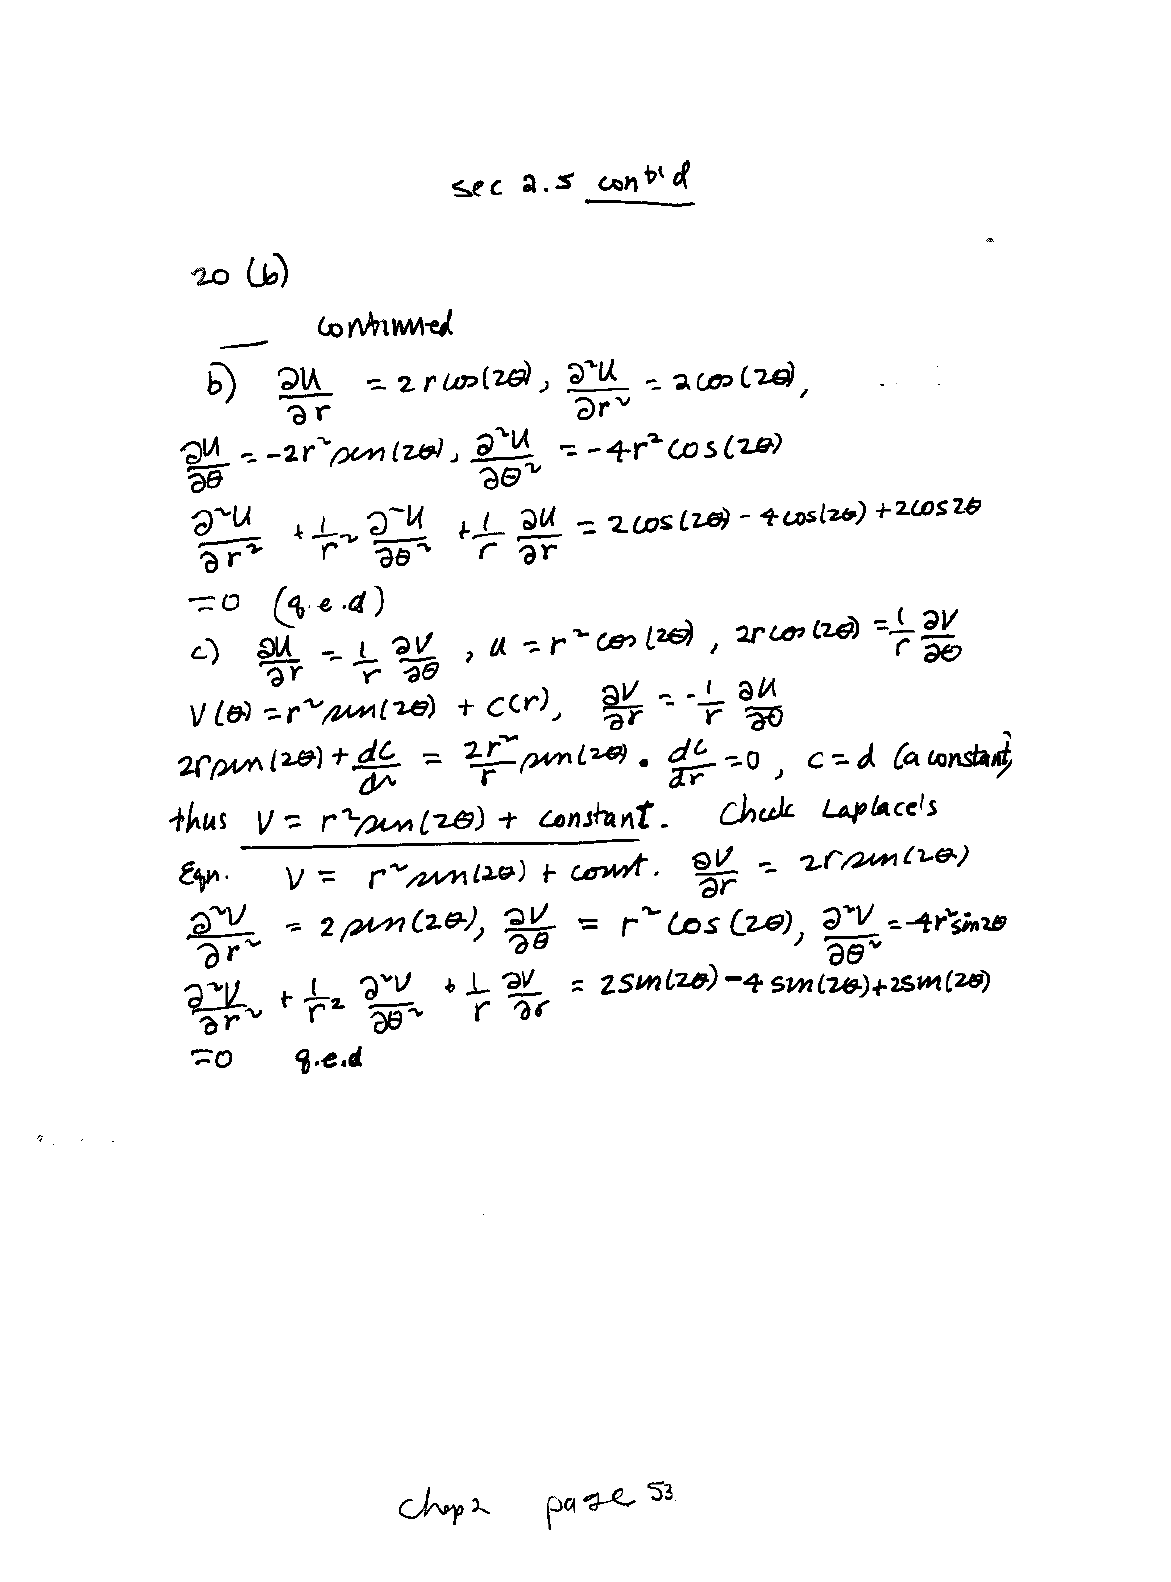 sec 2.5 cont'd
20 (b)
continued
b) ∂u/∂r = 2r cos(2θ), ∂²u/∂r² = 2cos(2θ),
∂u/∂θ = -2r² sin(2θ), ∂²u/∂θ² = -4r² cos(2θ)
∂²u/∂r² + 1/r² ∂²u/∂θ² + 1/r ∂u/∂r = 2cos(2θ) - 4cos(2θ) + 2cos2θ
=0 (q.e.d)
c) ∂u/∂r = 1/r ∂v/∂θ, u = r² cos(2θ), 2r cos(2θ) = 1/r ∂v/∂θ
V(θ) = r² sin(2θ) + C(r), ∂v/∂r = -1/r ∂u/∂θ
2r sin(2θ) + dc/dr = 2r²/r sin(2θ). dc/dr = 0, c = d (a constant)
thus V = r² sin(2θ) + constant. Check Laplace's
Eqn. V = r² sin(2θ) + const. ∂v/∂r = 2r sin(2θ)
∂²v/∂r² = 2 sin(2θ), ∂v/∂θ = r² cos(2θ), ∂²v/∂θ² = -4r² sin2θ
∂²v/∂r² + 1/r² ∂²v/∂θ² + 1/r ∂v/∂r = 2sin(2θ) - 4 sin(2θ) + 2sin(2θ)
=0 q.e.d
Chap 2 page 53